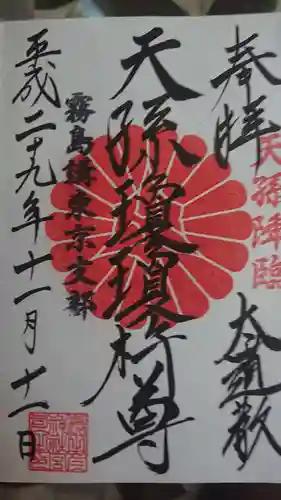 奉拝
天孫降臨
天孫瓊瓊杵尊
霧島講東京支部
平成二十九年十一月十一日